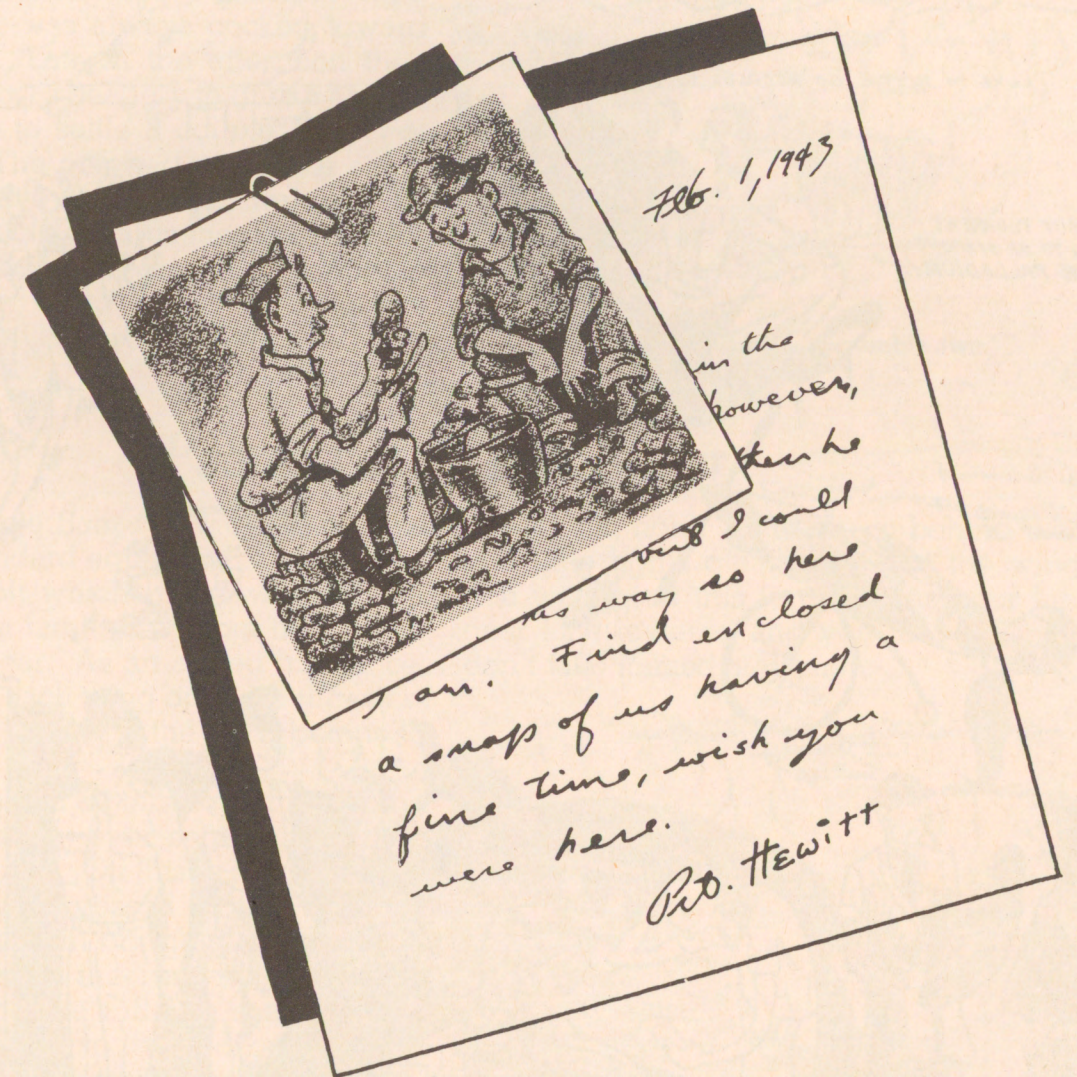 Feb. 1, 1943
in the
however,
then he
but I could
way so here
I am. Find enclosed
a snap of us having a
fine time, wish you
were here.
Pvt. Hewitt